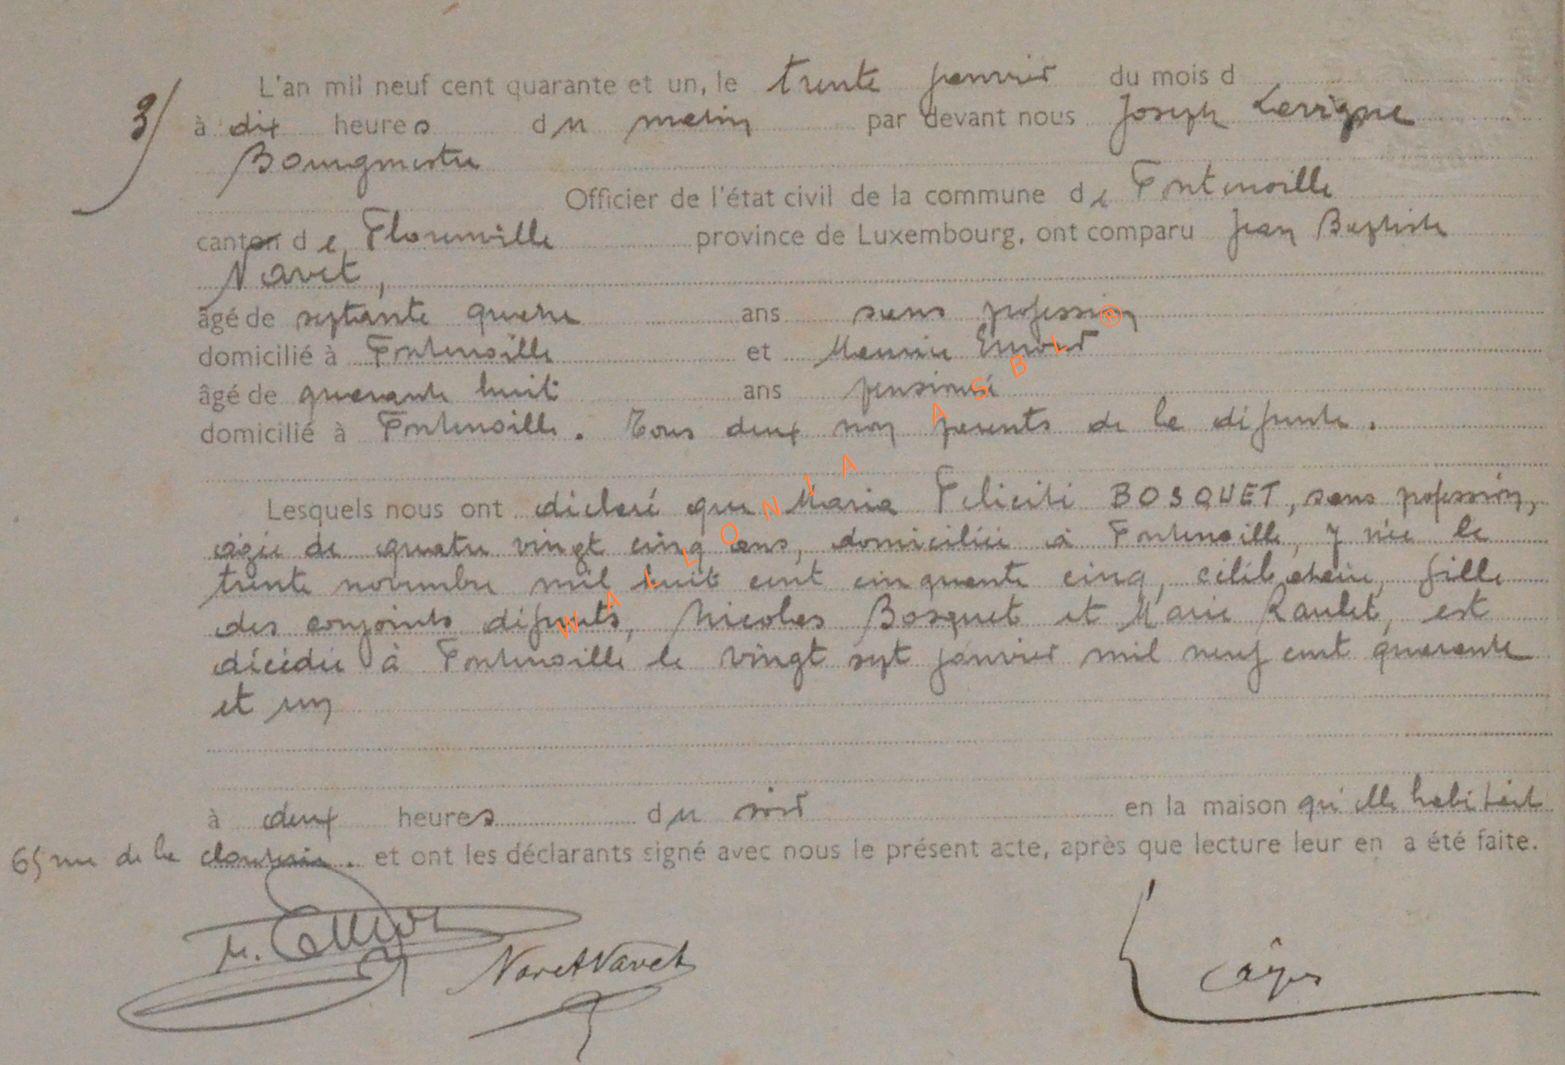 3/
L'an mil neuf cent quarante et un, le trente janvier du mois d
à dix heures du matin par devant nous Joseph Lavigne
Bourgmestre
Officier de l'état civil de la commune de Fontenoille
canton de Florenville province de Luxembourg, ont comparu Jean Baptiste
Navet,
âgé de septante quatre ans sans profession
domicilié à Fontenoille et Maurice
âgé de quarante huit ans pensionné
domicilié à Fontenoille. Tous deux non parents de la défunte.
Lesquels nous ont déclaré que Maria Félicité BOSQUET, sans profession,
âgée de quatre vingt cinq ans, domiciliée à Fontenoille, y née le
trente novembre mil huit cent cinquante cinq, célibataire, fille
des conjoints défunts, Nicolas Bosquet et Marie Raulet, est
décédée à Fontenoille le vingt sept janvier mil neuf cent quarante
et un
à deux heures du soir en la maison qu'elle habitait
65 rue de la clouterie. et ont les déclarants signé avec nous le présent acte, après que lecture leur en a été faite.
Navet
WALLONIA ASBL ®